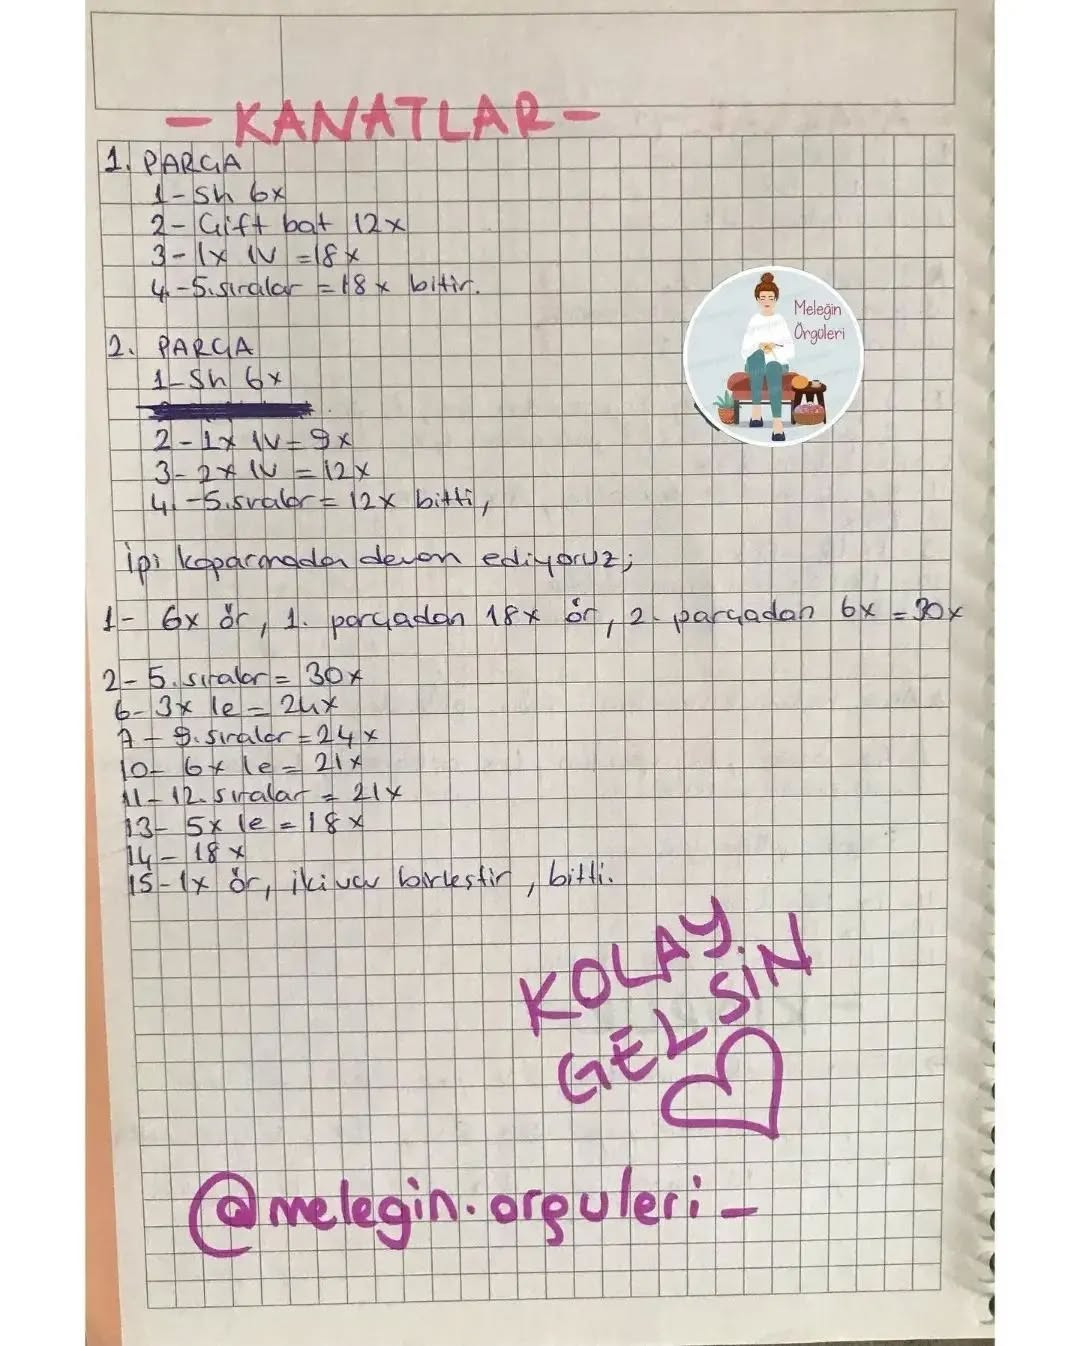 - KANATLAR -
1. PARÇA
1- Sh 6x
2- Çift bat 12x
3- 1x 1V = 18x
4-5.sıralar = 18x bitir.
Meleğin
Örgüleri
2. PARÇA
1- Sh 6x
2- 1x 1V = 9x
3- 2x 1V = 12x
4-5.sıralar = 12x bitti,
İpi koparmadan devam ediyoruz;
1- 6x ör, 1. parçadan 18x ör, 2. parçadan 6x = 30x
2-5.sıralar = 30x
6- 3x 1e = 24x
7-9.sıralar = 24x
10- 6x 1e = 21x
11-12.sıralar = 21x
13- 5x 1e = 18x
14- 18x
15- 1x ör, iki ucu birleştir, bitti.
KOLAY
GELSİN
@melegin.orguleri_